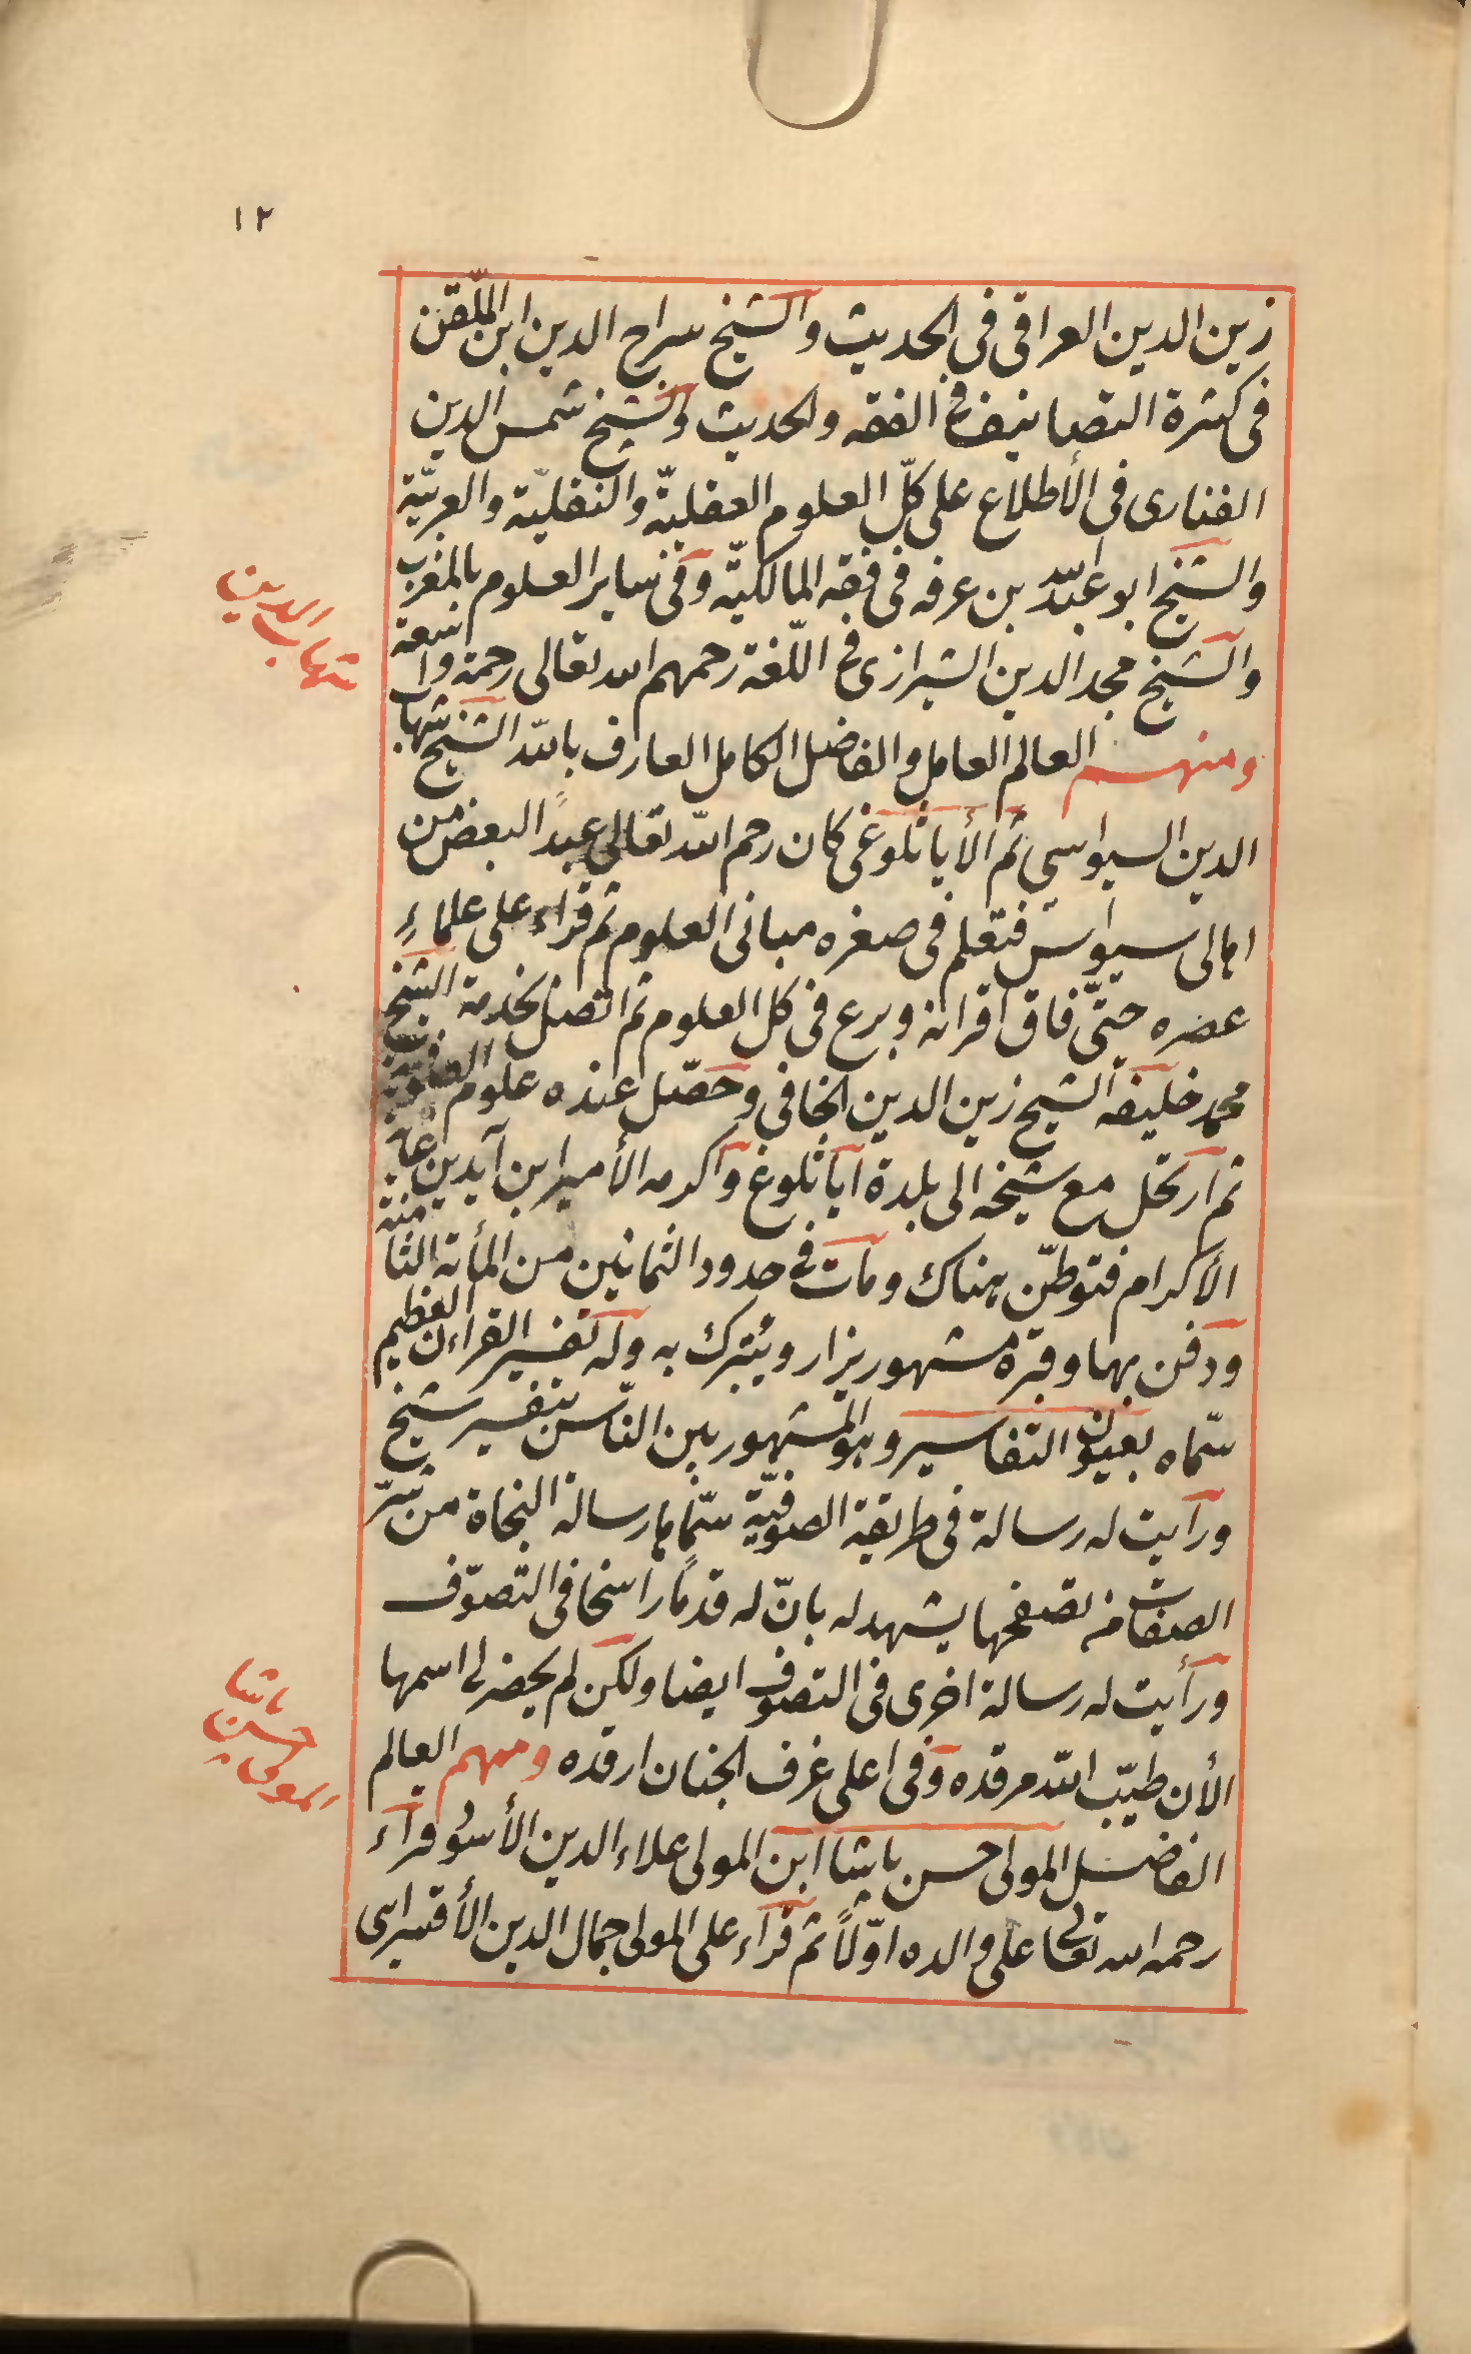 ١٢
زين الدين العراقى فى الحديث والشيخ سراج الدين ابن الملّقن
فى كثرة التصانيف فى الفقه والحديث والشيخ شمس الدين
الفنارى فى الأطلاع على كلّ العلوم العقليّة والنقليّة والعربيّة
والشيخ ابو عبد الله بن عرفه فى فقه المالكيّة وفى ساير العلوم بالمغرب
والشيخ مجد الدين الشيرازى فى اللّغة رحمهم الله تعالى رحمة واسعة
ومنهم العالم العامل والفاضل الكامل العارف بالله الشيخ شهاب
الدين السيواسي ثم الأياثلوغى كان رحم الله تعالى عبدًا لبعض من
اهالى سيواس فتعلم فى صغره مبانى العلوم ثم قراء على علماءِ
عصره حتىّ فاق اقرانه وبرع فى كل العلوم ثم اتصل بخدمة الشيخ
محمد خليفه الشيخ زين الدين الخافى وحصّل عنده علوم الصوفيّة
ثم ارتحل مع شيخه الى بلدة اياثلوغ واكرمه الأمير ابن آيدين غاية
الأكرام فتوطّن هناك ومات فى حدود الثمانين من المأية الثامنة
ودفن بهما وقبره مشهور يزار ويُتبرك به وله تفسير القراءن العظيم
سمّاه بعيون التفاسير وهو المشهور بين النّاس بتفسير شيخ
ورأيت له رسالة فى طريقة الصوفيّة سمّاها رسالة النجاة من شرّ
الصفات من تصفحها يشهد له بانّ له قدمًا راسخا فى التصوّف
ورأيت له رسالة اخرى فى التصوف ايضا ولكن لم يحضر لى اسمها
الأن طيّب الله مرقده وفى اعلى غرف الجنان ارقده ومنهم العالم
الفاضل المولى حسن باشا ابن المولى علاء الدين الأسود قراء
رحمه الله تعالى على والده اوّلاً ثم قراء على المولى جمال الدين الأقسرايى
شهاب الدين
المولى حسن باشا